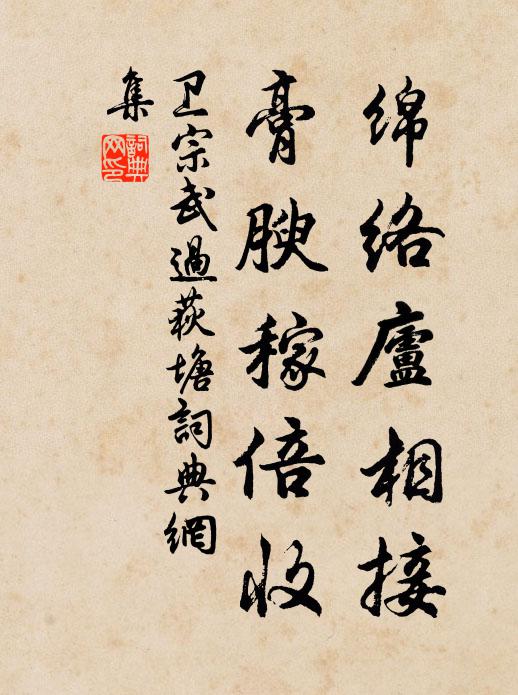 绵络廬相接
膏腴稼倍收
卫宗武過荻塘詞典網
集
詞典
网印